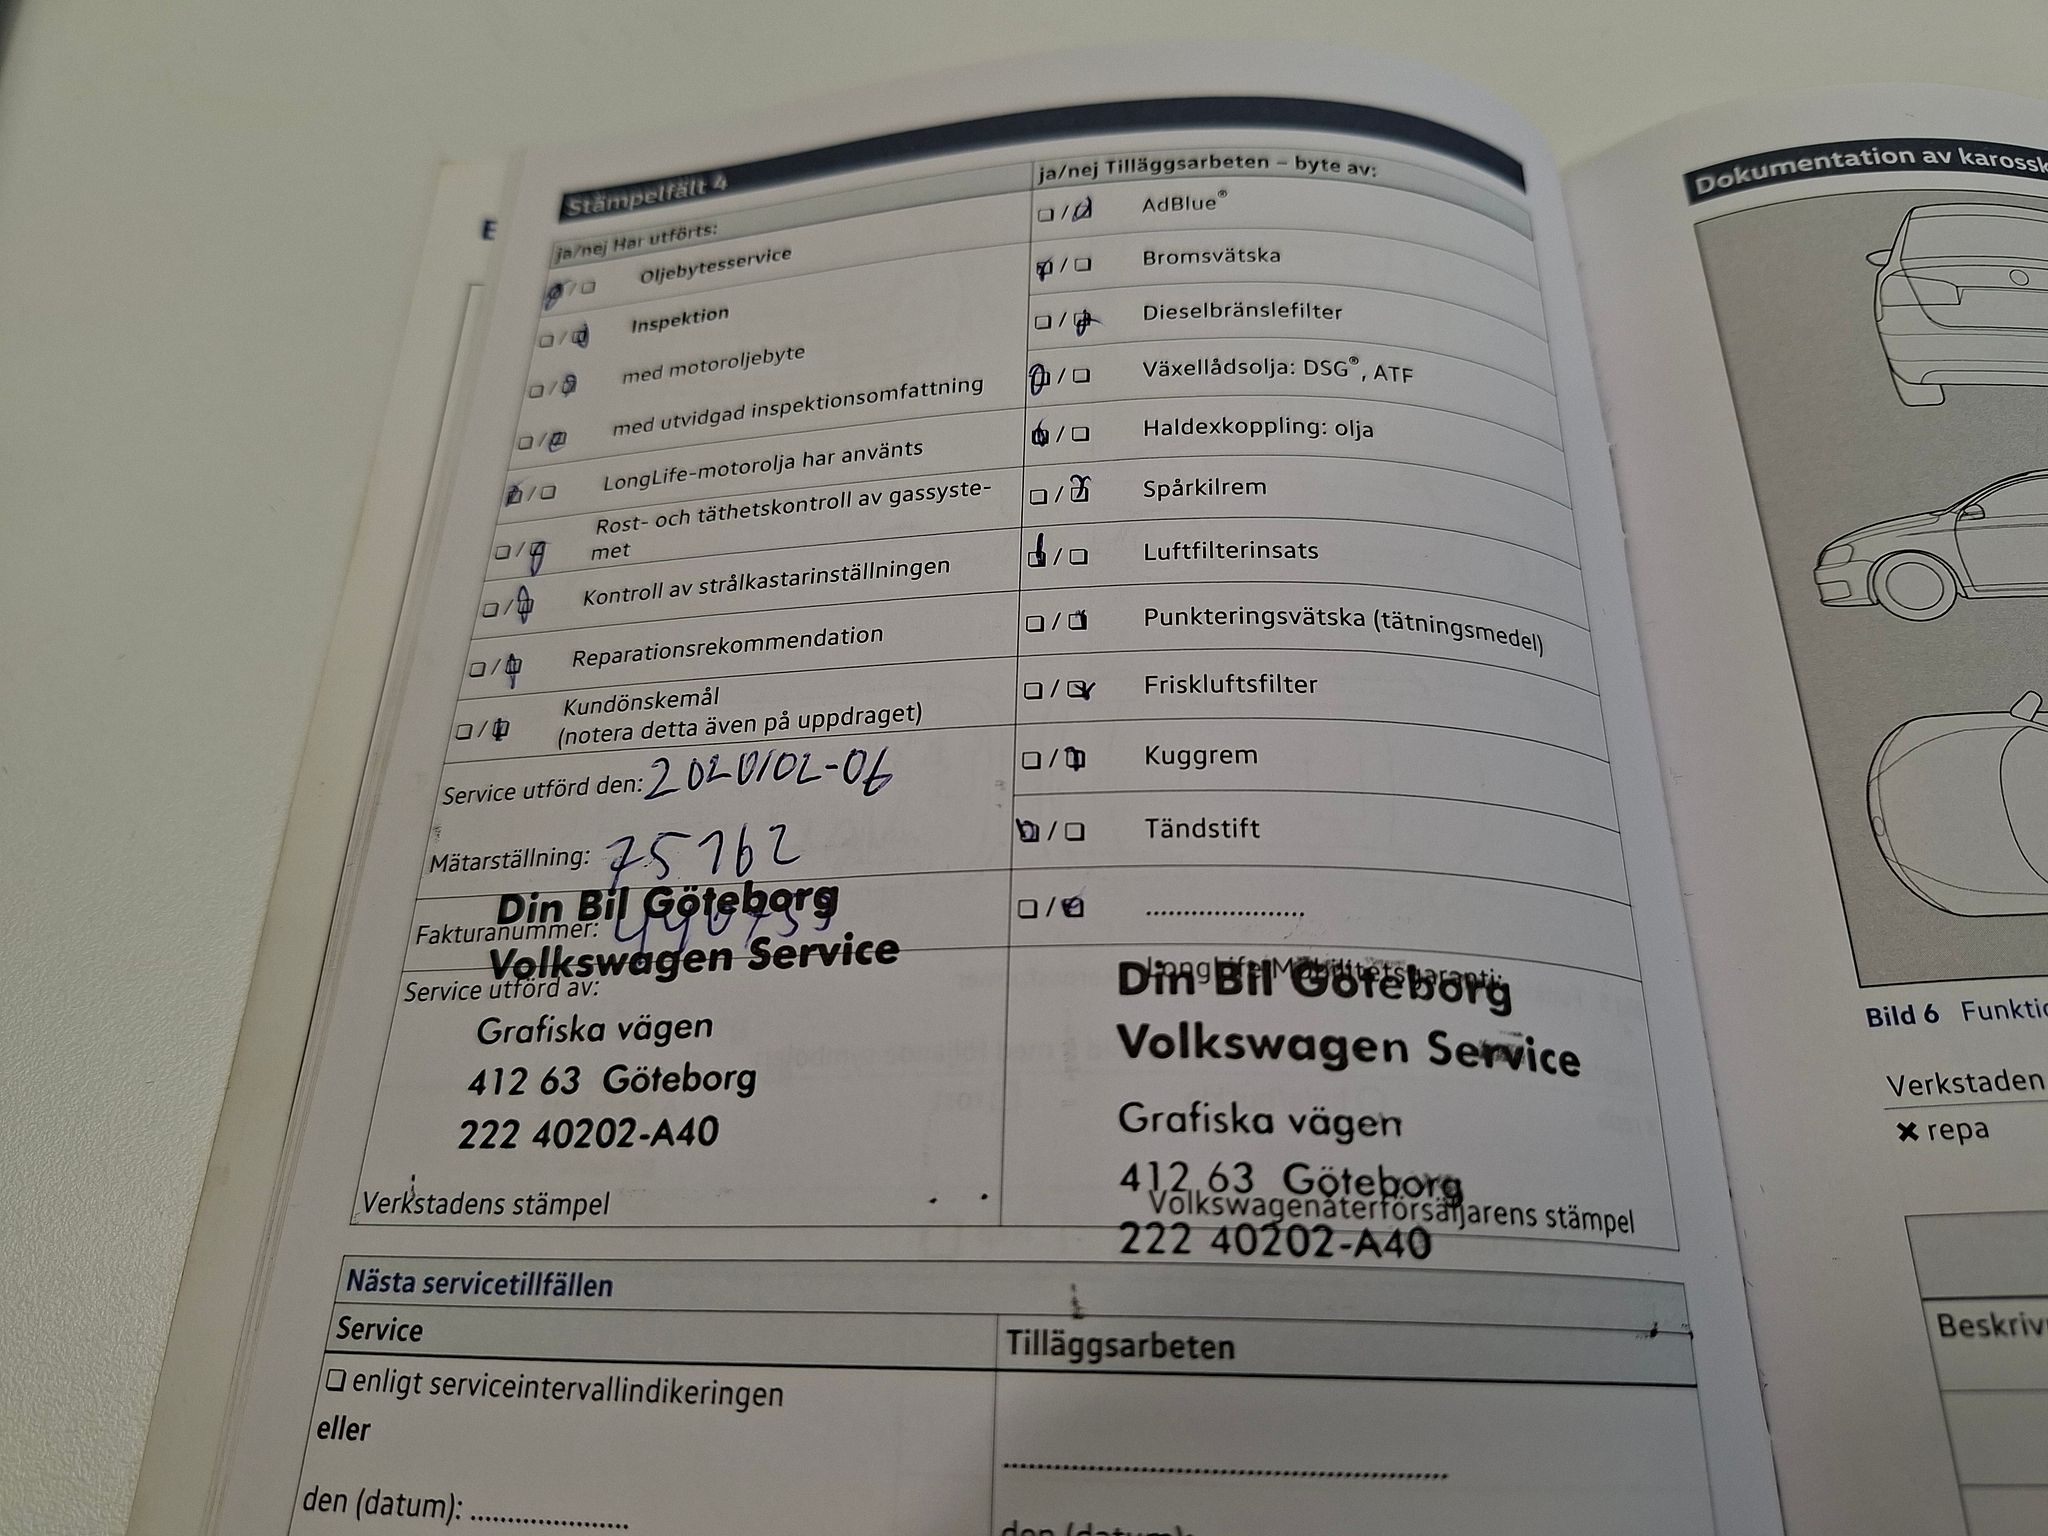 E
Stämpelfält 4
ja/nej Har utförts:
Oljebytesservice
Inspektion
med motoroljebyte
med utvidgad inspektionsomfattning
LongLife-motorolja har använts
Rost- och täthetskontroll av gassyste-
met
Kontroll av strålkastarinställningen
Reparationsrekommendation
Kundönskemål
(notera detta även på uppdraget)
Service utförd den: 2020/02-06
Mätarställning: 75162
Fakturanummer:
Din Bil Göteborg
Volkswagen Service
Service utförd av:
Grafiska vägen
412 63 Göteborg
222 40202-A40
Verkstadens stämpel
ja/nej Tilläggsarbeten – byte av:
AdBlue®
Bromsvätska
Dieselbränslefilter
Växellådsolja: DSG®, ATF
Haldexkoppling: olja
Spårkilrem
Luftfilterinsats
Punkteringsvätska (tätningsmedel)
Friskluftsfilter
Kuggrem
Tändstift
......................
LongLife Mobilitetsgaranti:
Din Bil Göteborg
Volkswagen Service
Grafiska vägen
412 63 Göteborg
Volkswagenåterförsäljarens stämpel
222 40202-A40
Nästa servicetillfällen
Service
Tilläggsarbeten
enligt serviceintervallindikeringen
eller
den (datum): ......................
den (datum):
Dokumentation av karossk
Bild 6 Funktio
Verkstaden
✖ repa
Beskriv